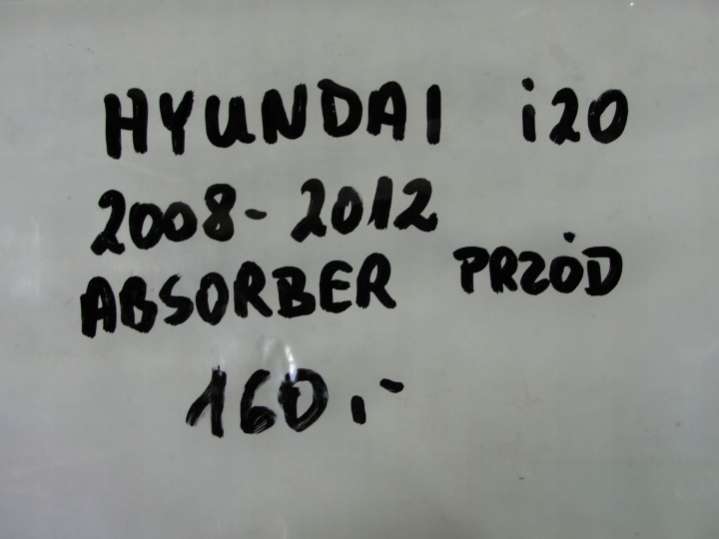 HYUNDAI i20
2008-2012
ABSORBER PRZÓD
160.-